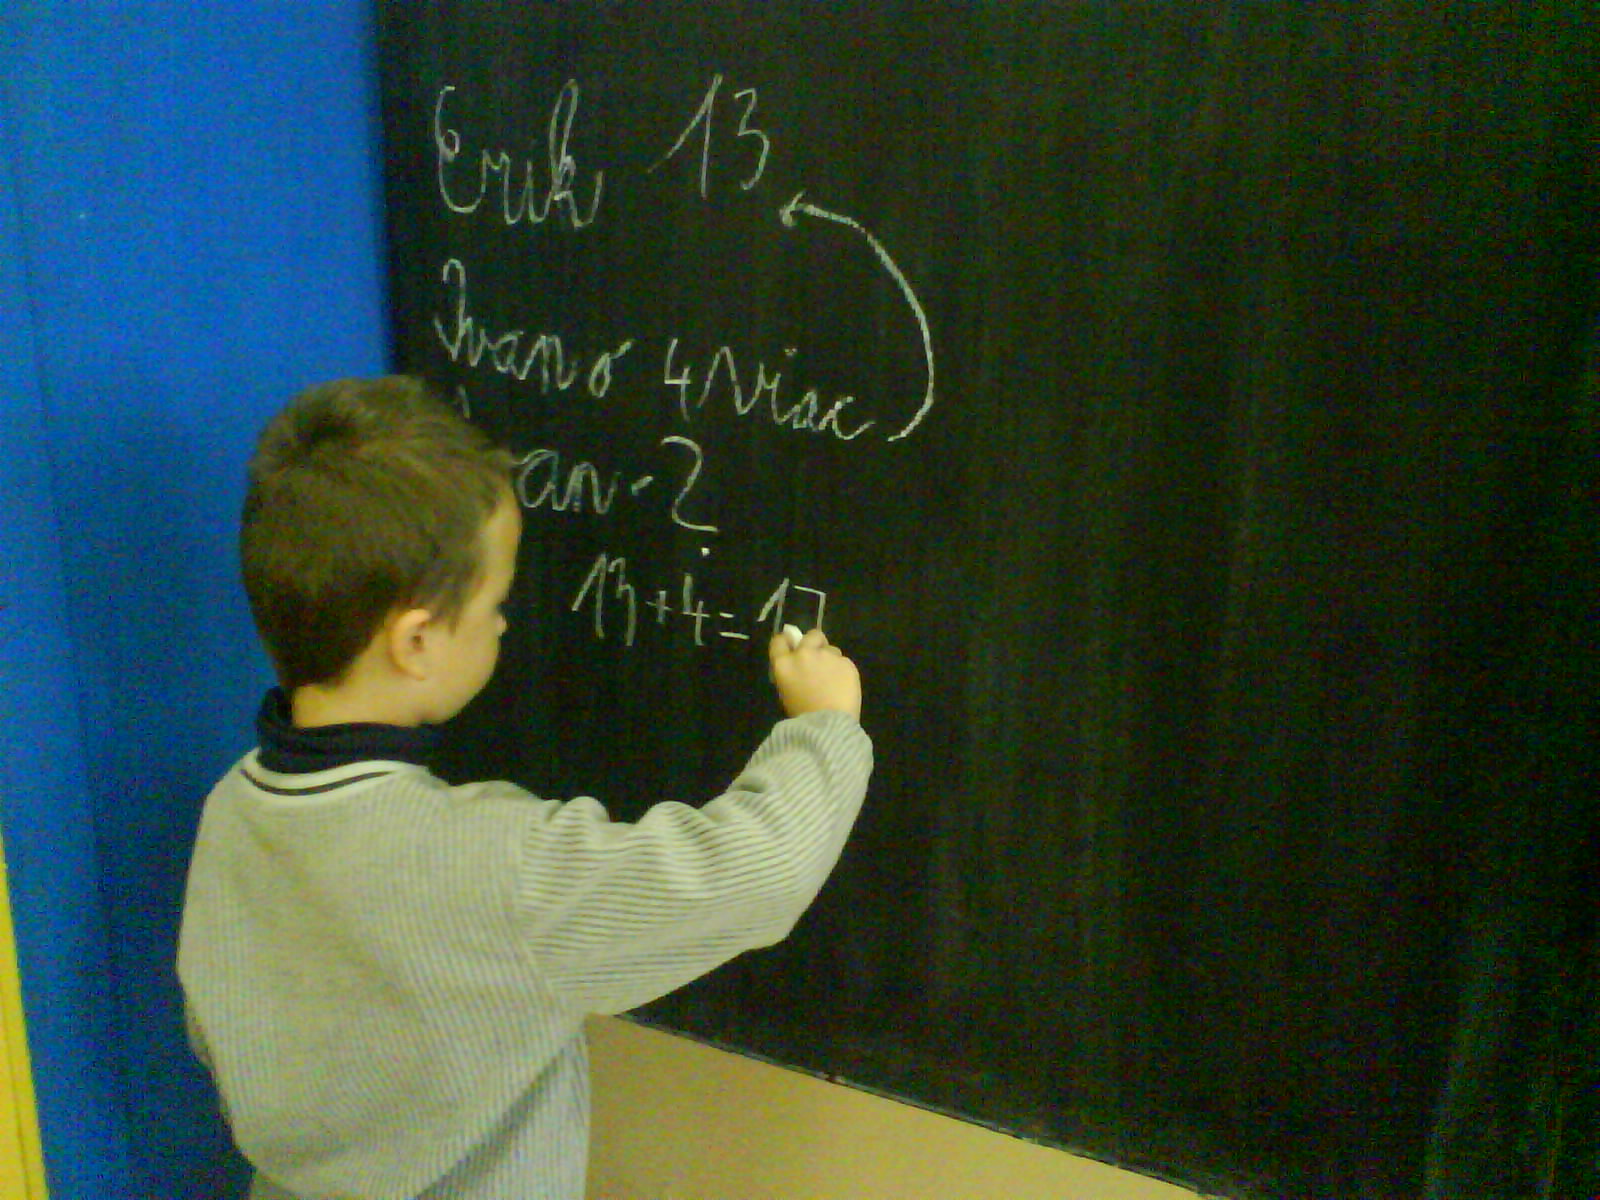 Erik 13
Ivan o 4 viac
an - 2
13 + 4 = 17